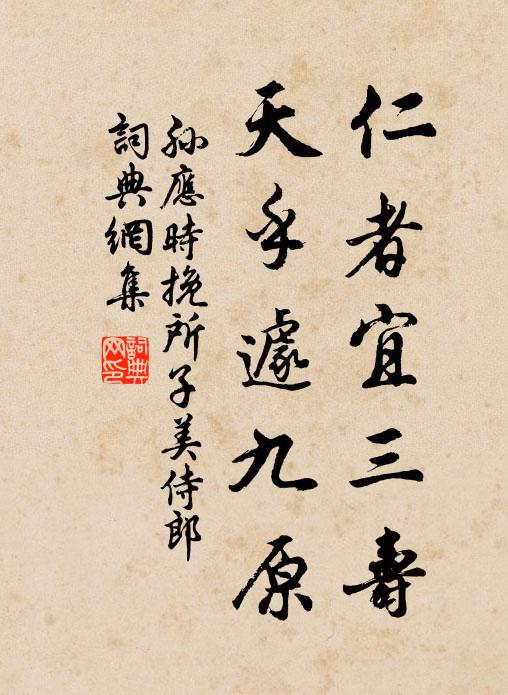 仁者宜三壽
天乎遽九原
孫應時挽所子美侍郎
詞典網集
詞典网印